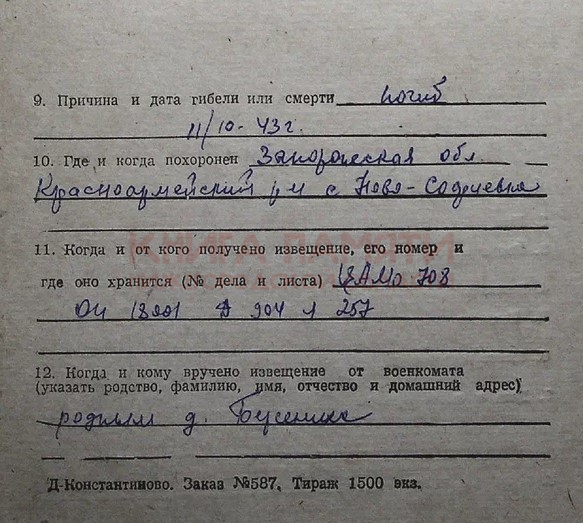 9. Причина и дата гибели или смерти погиб
11/10-43 г.
10. Где и когда похоронен Запорожская обл
Красноармейский р-н с Ново-Софиевка
КНИГА ПАМЯТИ
11. Когда и от кого получено извещение, его номер и
где оно хранится (№ дела и листа) ЦАМО-708
ОП 18001 Д 904 л 257
12. Когда и кому вручено извещение от военкомата
(указать родство, фамилию, имя, отчество и домашний адрес)
родным д.
Д-Константиново. Заказ №587, Тираж 1500 экз.